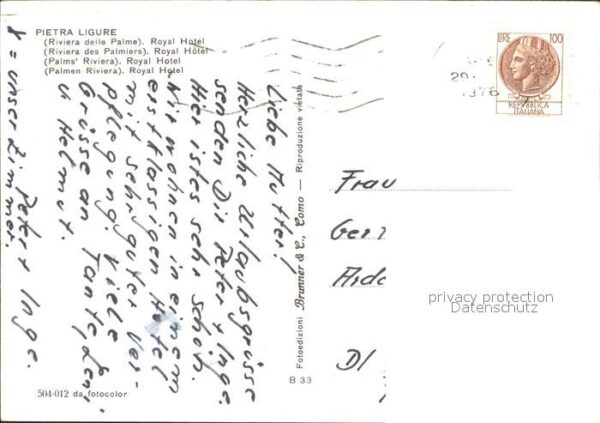 PIETRA LIGURE
(Riviera delle Palme). Royal Hotel
(Riviera des Palmiers). Royal Hôtel
(Palms' Riviera). Royal Hotel
(Palmen Riviera). Royal Hotel
Liebe Mutter!
Herzliche Urlaubsgrüsse
senden Dir Peter + Inge.
Hier ist es sehr schön.
Wir wohnen in einem
erstklassigen Hotel
mit sehr guter Ver-
pflegung. Viele
Grüsse an Tante
u Helmut.
Peter + Inge.
X = unser Zimmer.
504-012 da fotocolor
Fotoedizioni Brunner & C., Como — Riproduzione vietata
B 33
LIRE 100
REPVBBLICA
ITALIANA
29
1976
Frau
Ger
Arde
D/
privacy protection
Datenschutz